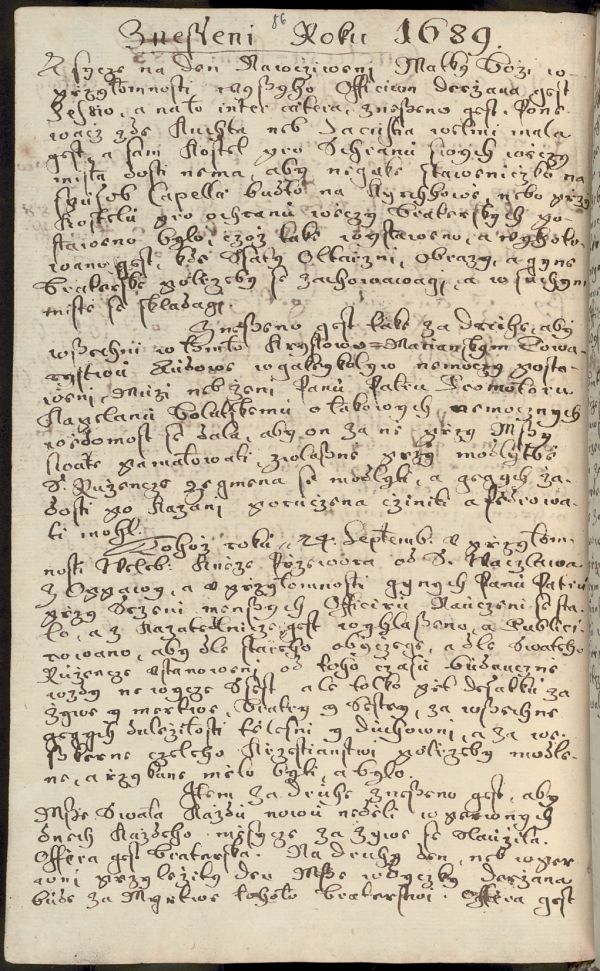 86
Znesseni Roku 1689.
A sycze na den Nawcziweni Matky Bozi, w
przytomnosti wsseho Officium derzana gest
Sessio, a na to inter caetera, znesseno gest. Pone
wacz zde Kuchta neb Zacristia welmi mala
gest, a sam Kostel pro Schranu swych weczy
mista dosti nema, aby negake staweniczko na
spusob Capelly budto na Kyrchhowe, nebo przy
Kostelu pro ochranu weczy Bratrskych po-
staweno bylo, czoz take wystaweno, a wyhoto-
wano gest, kde Ssaty Oltarzni, Obrazy, a gyne
Bratrske potrzeby se zachowawagi, a w suchym
miste se skladagi.
Znesseno gest take za druhe, aby
wssechni w tomto Krystowo-Marianskym Towa-
rystwu Audowe w gakykolyw nemoczy posta-
weni, Muzi neb Zeni Panu Patru Promotoru
Kaplanu Solatskemu o takowych nemocznych
wedomost se dala, aby on za ne przy Mssy
swate pamatowati, zwlasstne przy modlytbe
S. Ruzencze zegmena se modlyti, a gegych za-
dosti po Kazani porucena cziniti a pedrowa-
ti mohl.
Tohoz roku 24. Septemb: v przytom-
nosti Weleb: Kneze Przewora od S. Waczlawa
z Oppawy, a v przytomnosti gynych Panu Patru
przy Sezeni menssych Officiru Nauczeni se sta-
lo, a z Kazatedlnicze gest wyhlasseno, a Publici-
rowano, aby dle stareho obyczege, a dle Swateho
Ruzencze Vstanoweni od toho czasu buducznie
wzdy ne wycze Ssest ale tolko pet desatku za
zywe y mertwe, Bratry y Sestry, za wssechne
gegych dulezitosti telesni y duchowni, a za we-
sskerne czeleho Krzestianstwi potrzeby modle-
ne, a rzykane mělo byti, a bylo.
Item za druhe znesseno gest, aby
Msse Swata Kazdu nowu nedeli w perwnych
dnech Kazdeho mesycze za zywe se Slauzila.
Offera gest bratrska. Na druhy den, neb w per
wni przylezity den Msse w Zyczky derzana
bude za Mrtwe tohoto bratrstwi. Offera gest